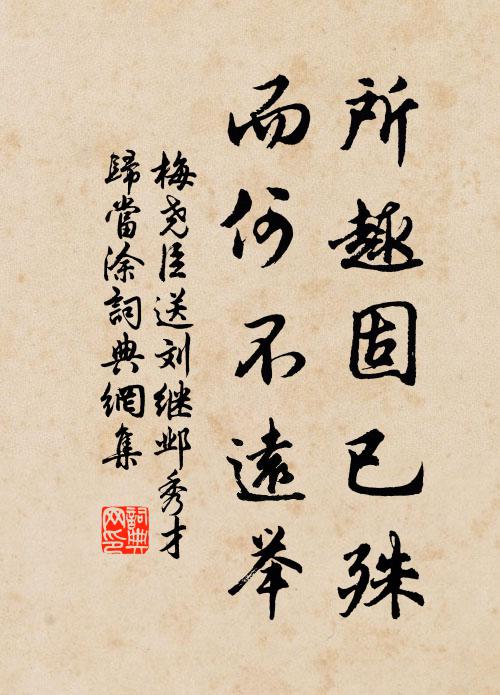 所趣固已殊
而何不遠举
梅尧臣送刘继邺秀才
歸當涂詞典網集
詞典网印